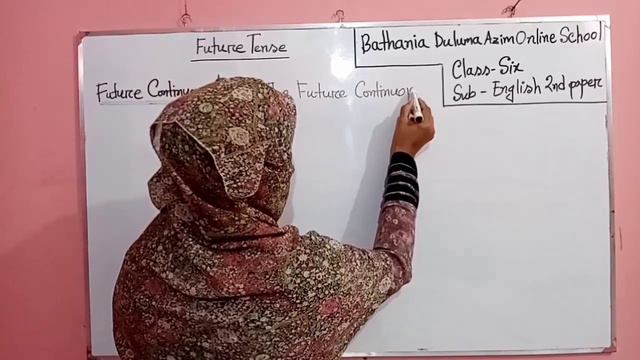 Future Tense
Bathania Duluma Azim Online School
Class-Six
Sub - English 2nd paper
Future Future Continuo